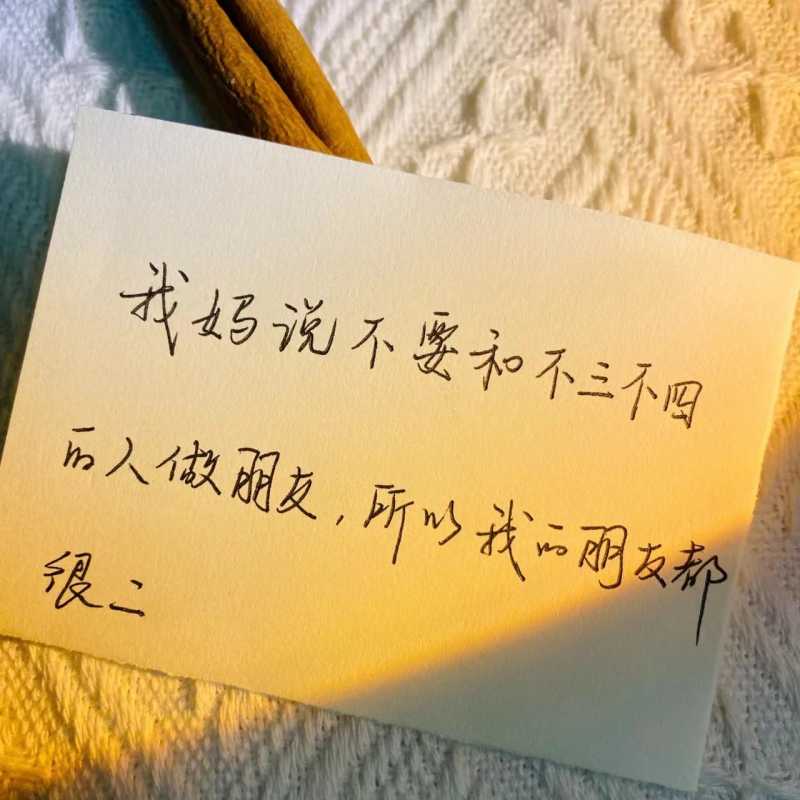 我妈说不要和不三不四
的人做朋友，所以我的朋友都
很二